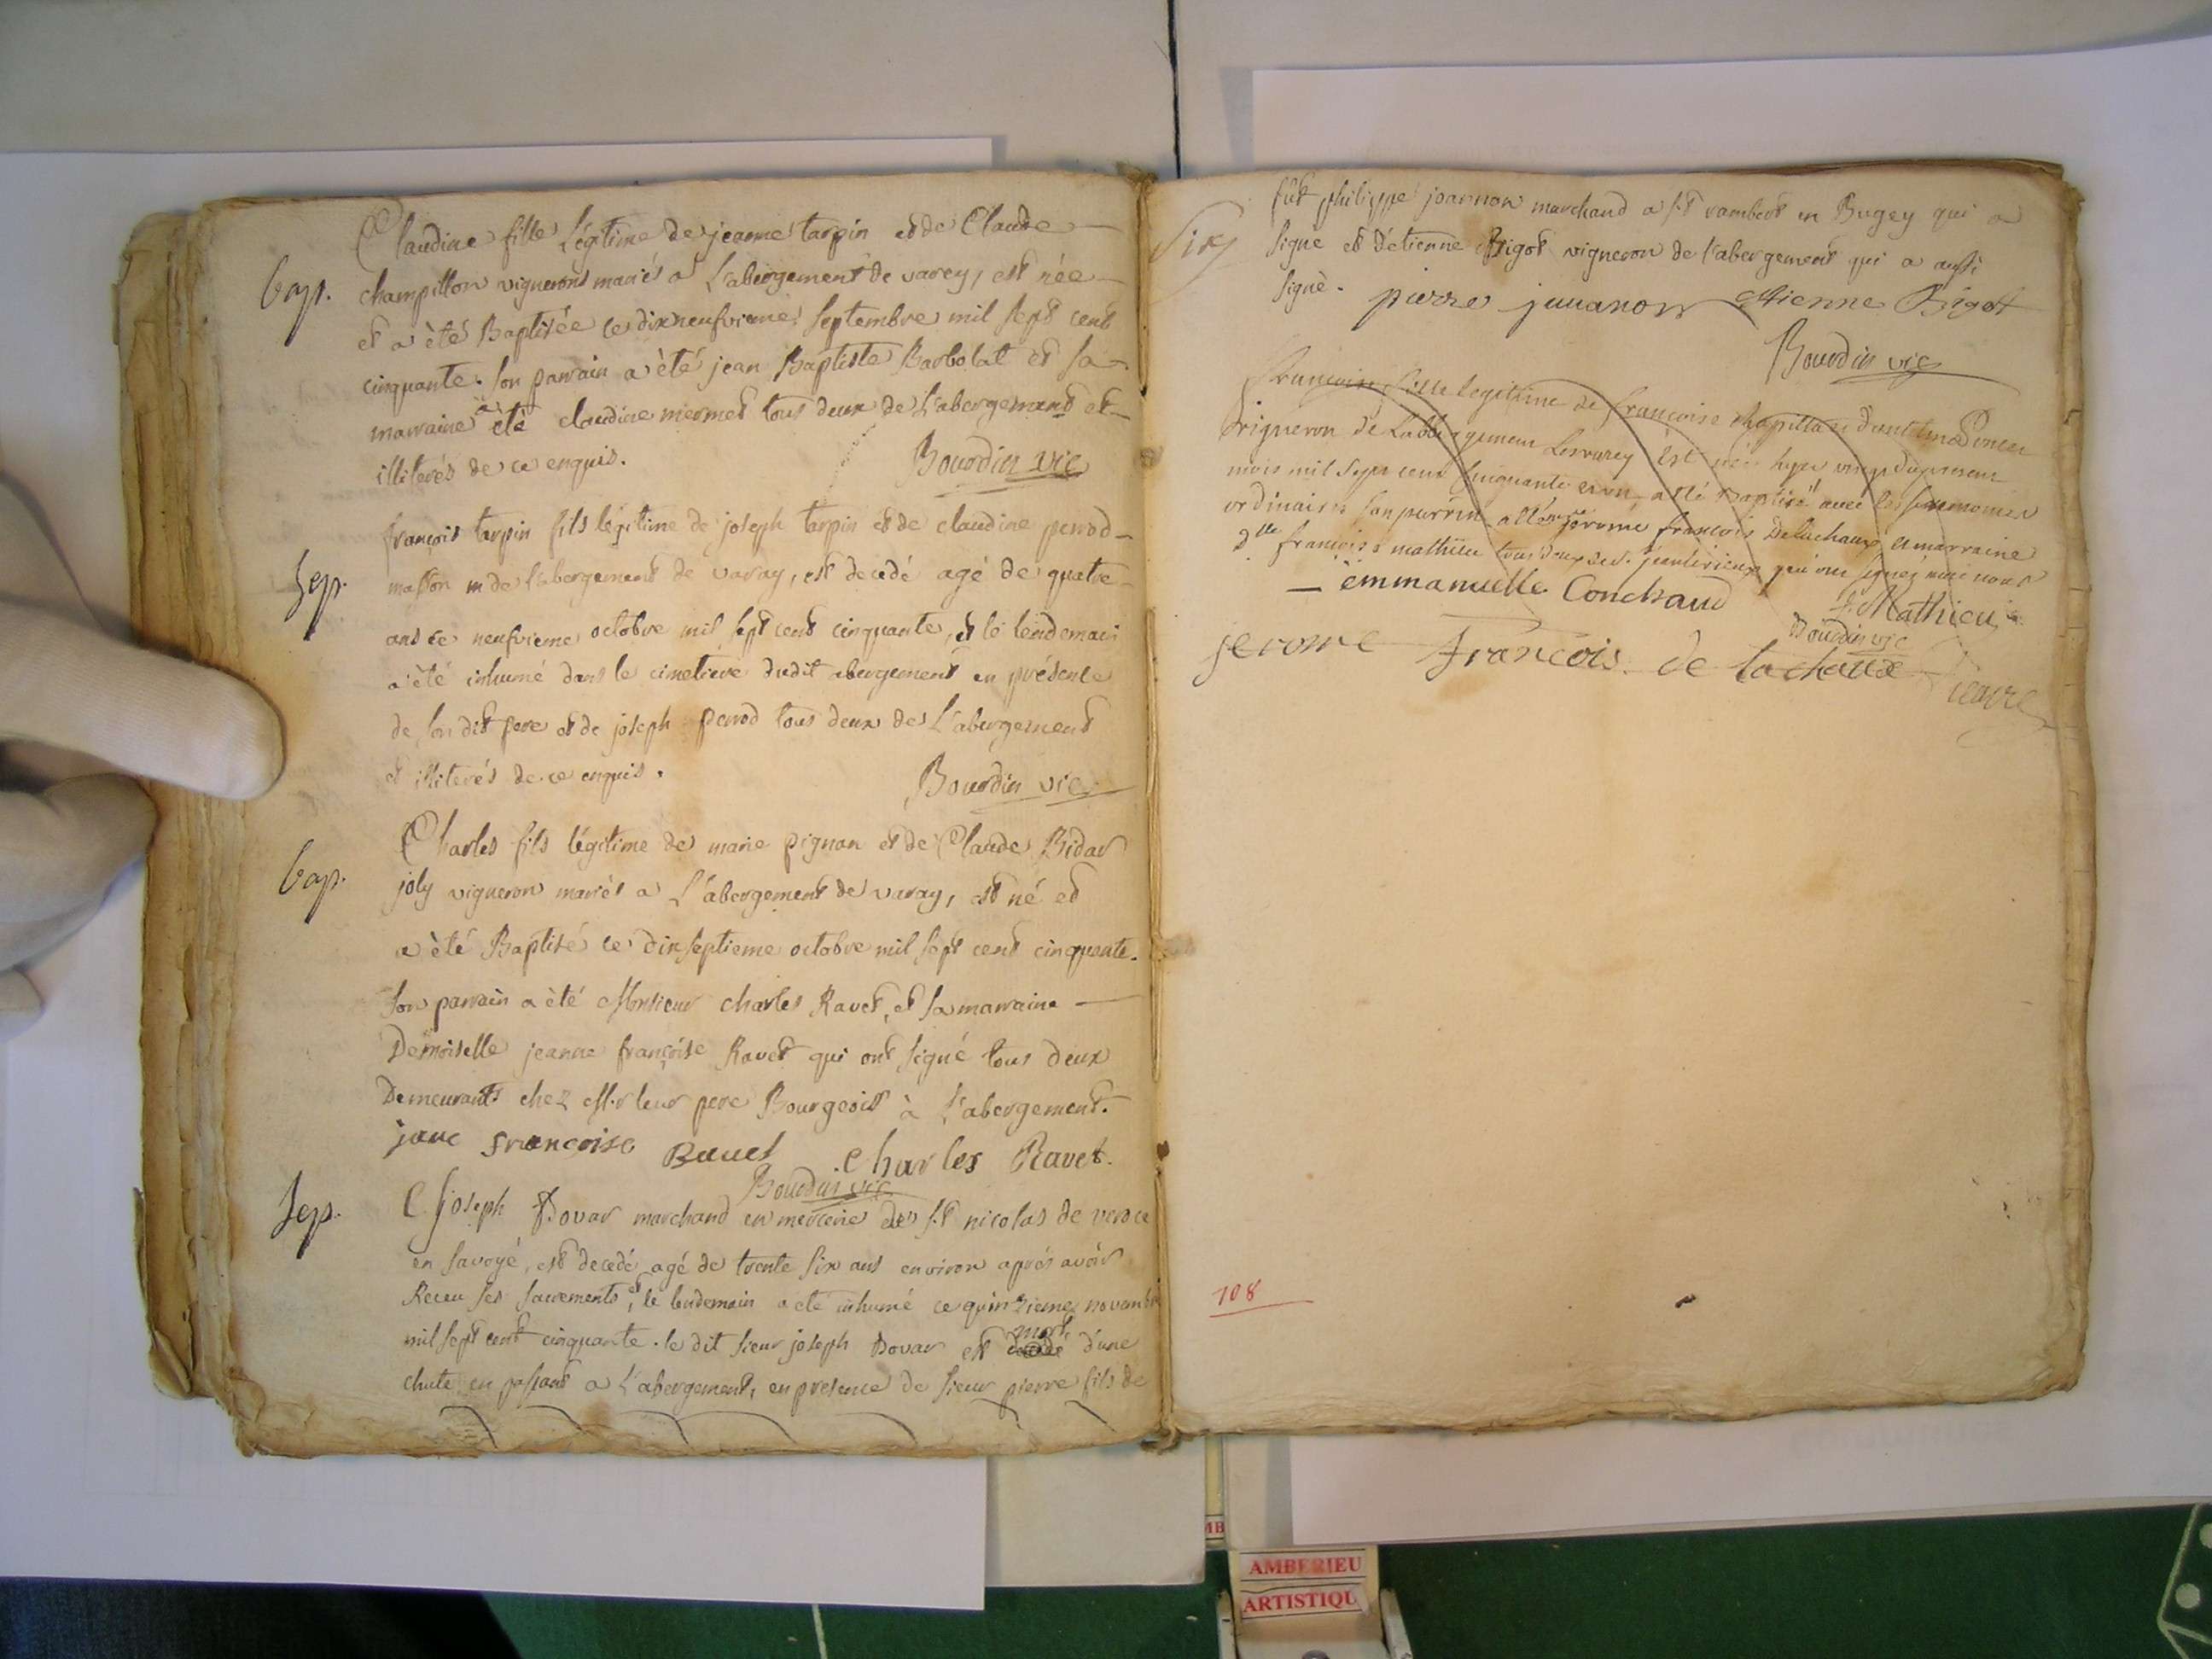 Claudine fille Légitime de jeanne tarpin et de Claude
bap. champillon vignerons mariés a L'abergement de varey, est née
et a èté Baptisée ce dixneufvieme Septembre mil Sept cent
cinquante. Son parrain a èté jean Baptiste Barbolat et Sa
marraine a èté claudine mermet tous deux de L'abergement et
illiterés de ce enquis. Bourdin vic
françois tarpin fils légitime de joseph tarpin et de claudine perrod
Sep. masson de l'abergement de varay, est decedé agé de quatre
ans ce neufvieme octobre mil Sept cent cinquante, et le lendemain
a èté inhumé dans le cimetiere dudit abergement en présence
de son dit pere et de joseph perrod tous deux de L'abergement
et illiterés de ce enquis. Bourdin vic
Charles fils légitime de marie pignon et de Claude Bidar
bap. joly vigneron mariés a L'abergement de varay, est né et
a èté Baptisé ce dixseptieme octobre mil Sept cent cinquante.
Son parrain a èté Monsieur charles Ravet, et Sa marraine
Demoiselle jeanne françoise Ravet qui ont Signé tous deux
Demeurants chez M.r leur pere Bourgeois à L'abergement.
jane francoise Ravet Charles Ravet.
Bourdin vic
Sep. Joseph Dovar marchand en mercerie de S.t nicolas de veroce
en Savoyé, est decedé agé de trente Six ans environ aprés avoir
Receu Ses Sacrements, et le lendemain a eté inhumé ce quinzieme novembre
mil Sept cent cinquante. le dit Sieur joseph Dovar est mort d'une
chute en passant a L'abergement, en presence de Sieur pierre fils de
fût philippe joannon marchand a S.t rambert en Bugey qui a
Signé et d'étienne Bigot vigneron de l'abergement qui a aussi
Signè. pierre jouanon Etienne Bigot
Bourdin vic
francoise fille legitime de francoise
vigneron de
mois mil Sept cent Cinquante a èté Baptisé avec les seremonies
ordinaires Son parrin jerome francois Delachaux et marraine
d.lle francoise mathieu tous deux
emmanuelle Conchaud f. Mathieu
Bourdin vic
jerome francois de lachaux
108
AMBERIEU
ARTISTIQU